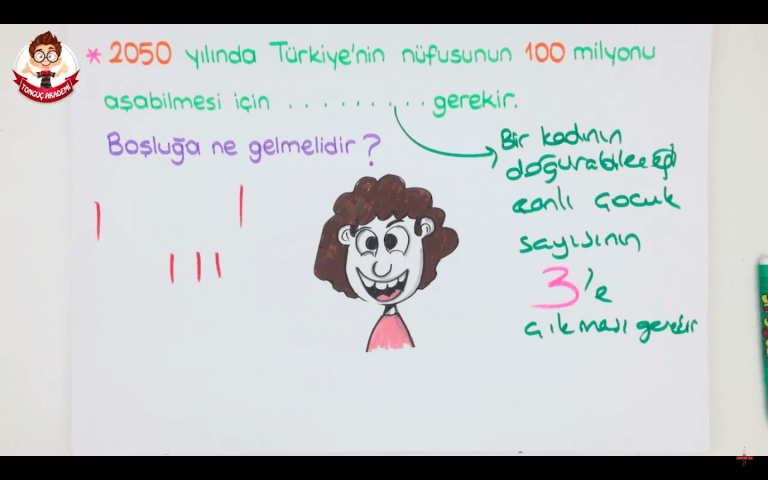 TONGUÇ AKADEMİ
* 2050 yılında Türkiye'nin nüfusunun 100 milyonu
aşabilmesi için . . . . . . . . . . gerekir.
Boşluğa ne gelmelidir ?
Bir kadının
doğurabileceği
canlı çocuk
sayısının
3'e
çıkması gerekir